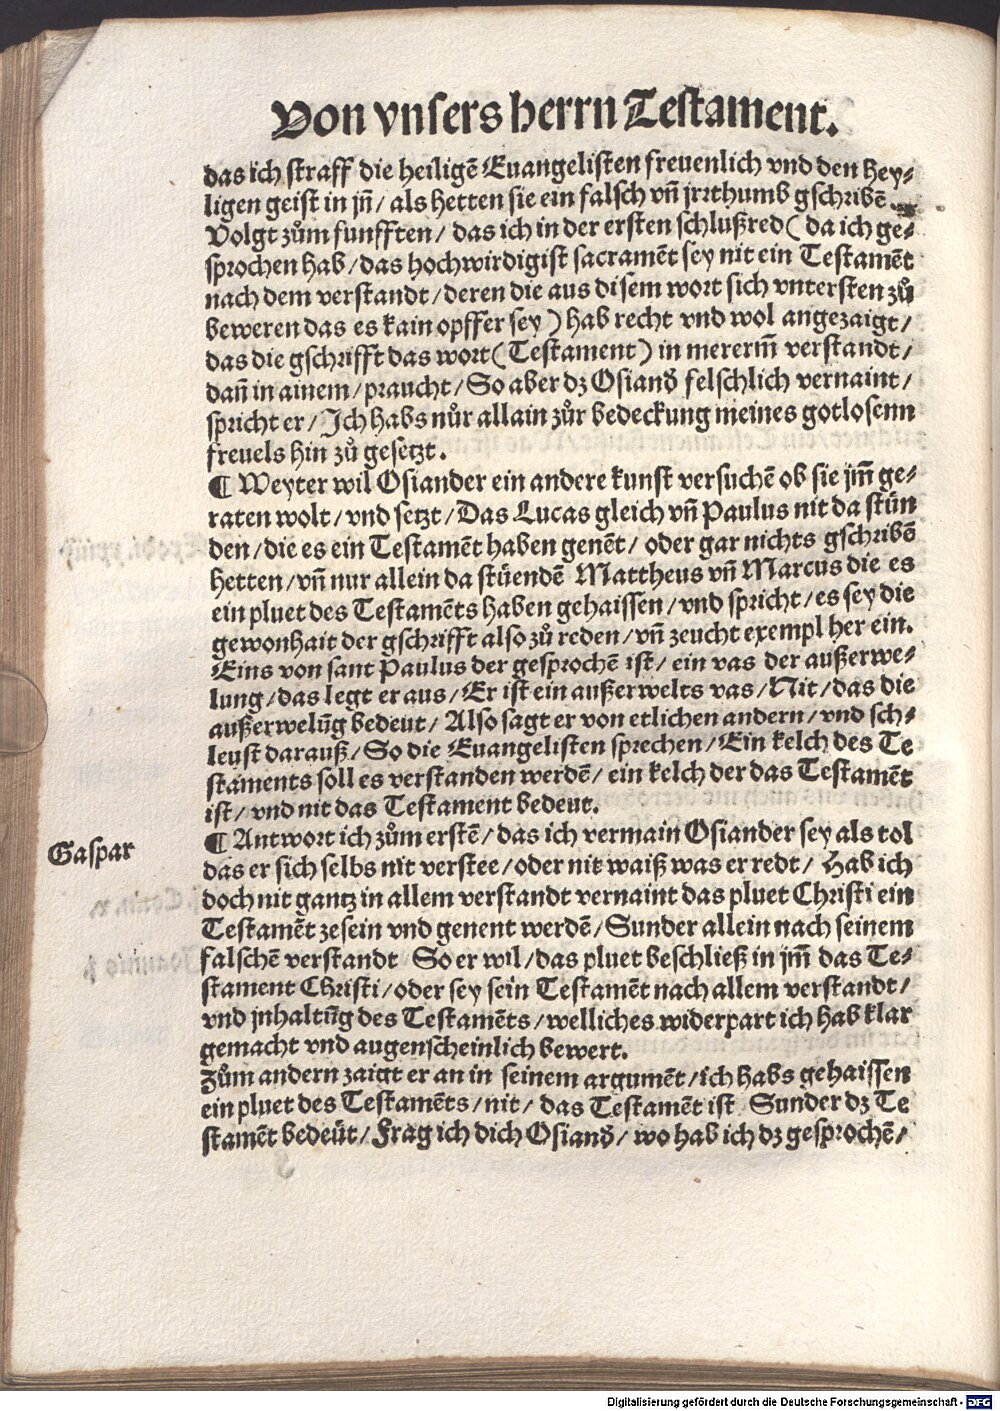 Von vnsers herrn Testament.
das ich straff die heiligē Euangelisten freuenlich vnd den hey⸗
ligen geist in jñ / als hetten sie ein falsch vñ jrrthumb gschribē
Volgt zům funfften / das ich in der ersten schlußred ( da ich ge⸗
sprochen hab / das hochwirdigist sacramēt sey nit ein Testamēt
nach dem verstandt / deren die aus disem wort sich vntersten zů
beweren das es kain opffer sey ) hab recht vnd wol angezaigt /
das die gschrifft das wort ( Testament ) in mererm̃ verstandt /
dañ in ainem / praucht / So aber dz Osiand̕ felschlich vernaint /
spricht er / Ich habs nůr allain zůr bedeckung meines gotlosenn
freuels hin zů gesetzt.
¶ Weyter wil Osiander ein andere kunst versuchē ob sie jm̃ ge⸗
raten wolt / vnd setzt / Das Lucas gleich vñ Paulus nit da stün
den / die es ein Testamēt haben genēt / oder gar nichts gschribē
hetten / vñ nur allein da stüendē Mattheus vñ Marcus die es
ein pluet des Testamēts haben gehaissen / vnd spricht / es sey die
gewonhait der gschrifft also zů reden / vñ zeucht exempl her ein.
Eins von sant Paulus der gesprochē ist / ein vas der außerwe⸗
lung / das legt er aus / Er ist ein außerwelts vas / Nit / das die
außerwelūg bedeut / Also sagt er von etlichen andern / vnd sch⸗
leust darauß / So die Euangelisten sprechen / Ein kelch des Te
staments soll es verstanden werdē / ein kelch der das Testamēt
ist / vnd nit das Testament bedeut.
Gaspar
¶ Antwort ich zům erstē / das ich vermain Osiander sey als tol
das er sich selbs nit verstee / oder nit waiß was er redt / Hab ich
doch nit gantz in allem verstandt vernaint das pluet Christi ein
Testamēt zesein vnd genent werdē / Sunder allein nach seinem
falschē verstandt So er wil / das pluet beschließ in jm̃ das Te⸗
stament Christi / oder sey sein Testamēt nach allem verstandt /
vnd jnhaltūg des Testamēts / welliches widerpart ich hab klar
gemacht vnd augenscheinlich bewert.
Zům andern zaigt er an in seinem argumēt / ich habs gehaissen
ein pluet des Testamēts / nit / das Testamēt ist Sunder dz Te
stamēt bedeüt / Frag ich dich Osiand̕ / wo hab ich dz gesprochē /
Digitalisierung gefördert durch die Deutsche Forschungsgemeinschaft - DFG